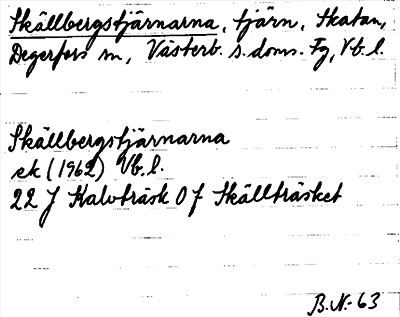 Skällbergstjärnarna, tjärn, Skatan,
Degerfors sn, Västerb. s. doms. Fg, Vb. l.
Skällbergstjärnarna
ek (1962) Vb. l.
22 J Kalvträsk 0 f Skällträsket
B.N.-63